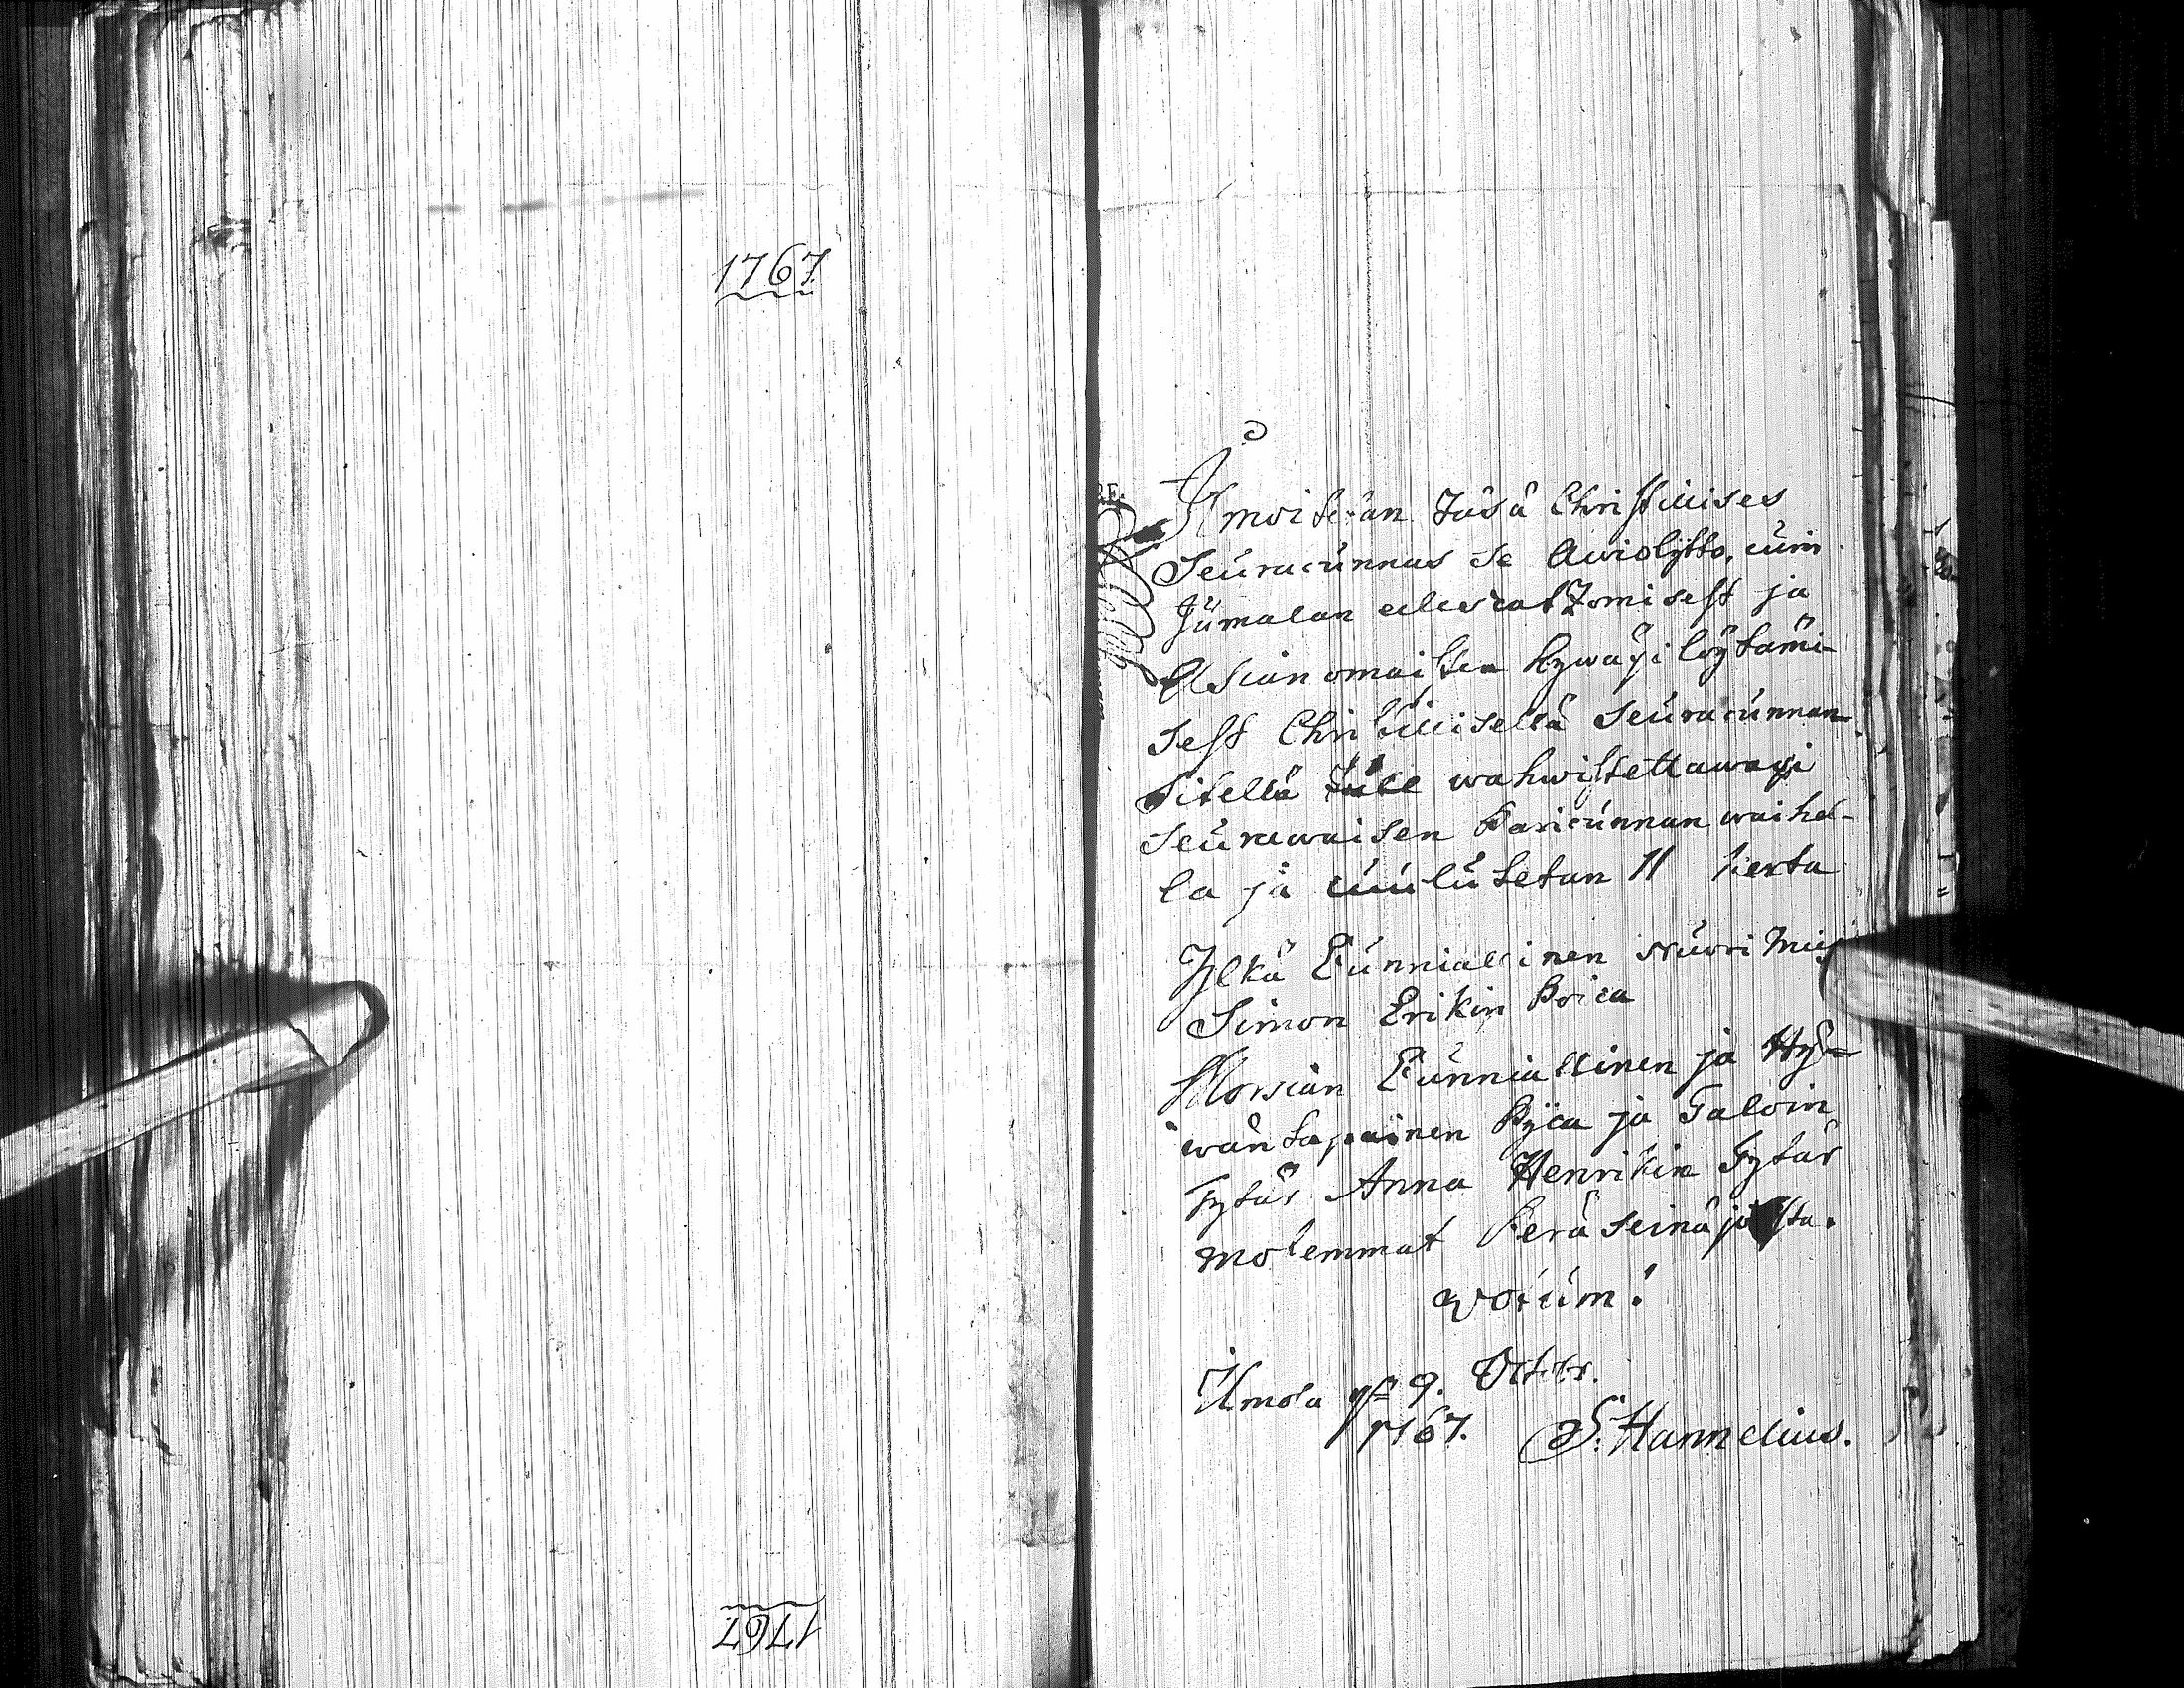 1767.
Ilmoitetan Täsä Christillises
Seuracunnas se Awiolijtto, cuin
Jumalan edescatzomisest ja
Asianomaisten hywäxi löytämi-
sest Christillisellä seuracunnan
sitellä tule wahwistettawaxi
seurawaisen Pariscunnan waihel-
la ja cuulutetan II kerta
Ylkä Cunniallinen Nuori Mies
Simon Erikin Poica
Morsian Cunniallinen ja Hy=
wäntapainen Pijca ja Taloin
Tytär Anna Henrikin Tytär
molemmat Peräseinäjoelta.
votum!
Ilmola 9. Octobr.
1767. S. Hannelius.
1767.